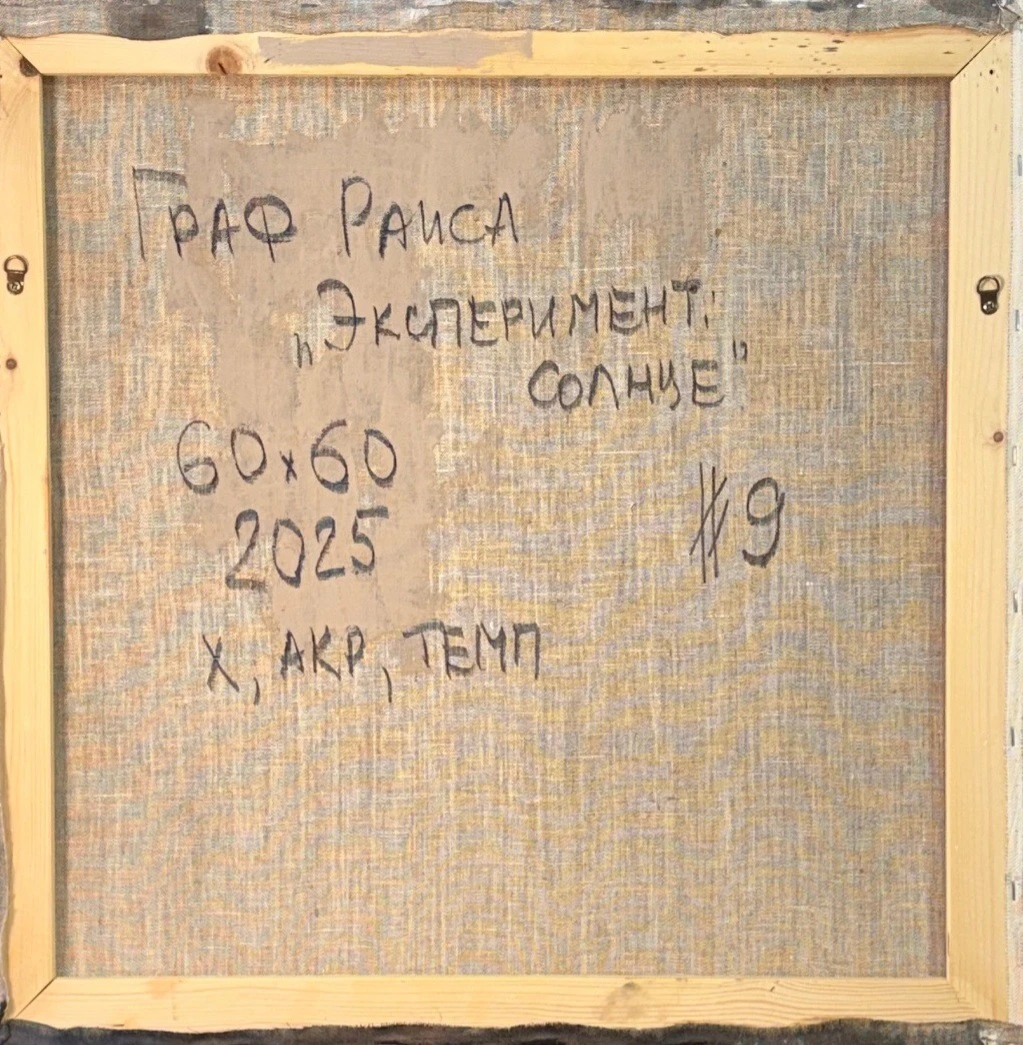 ГРАФ РАИСА
„ЭКСПЕРИМЕНТ:
СОЛНЦЕ"
60х60
2025
#9
Х, АКР, ТЕМП